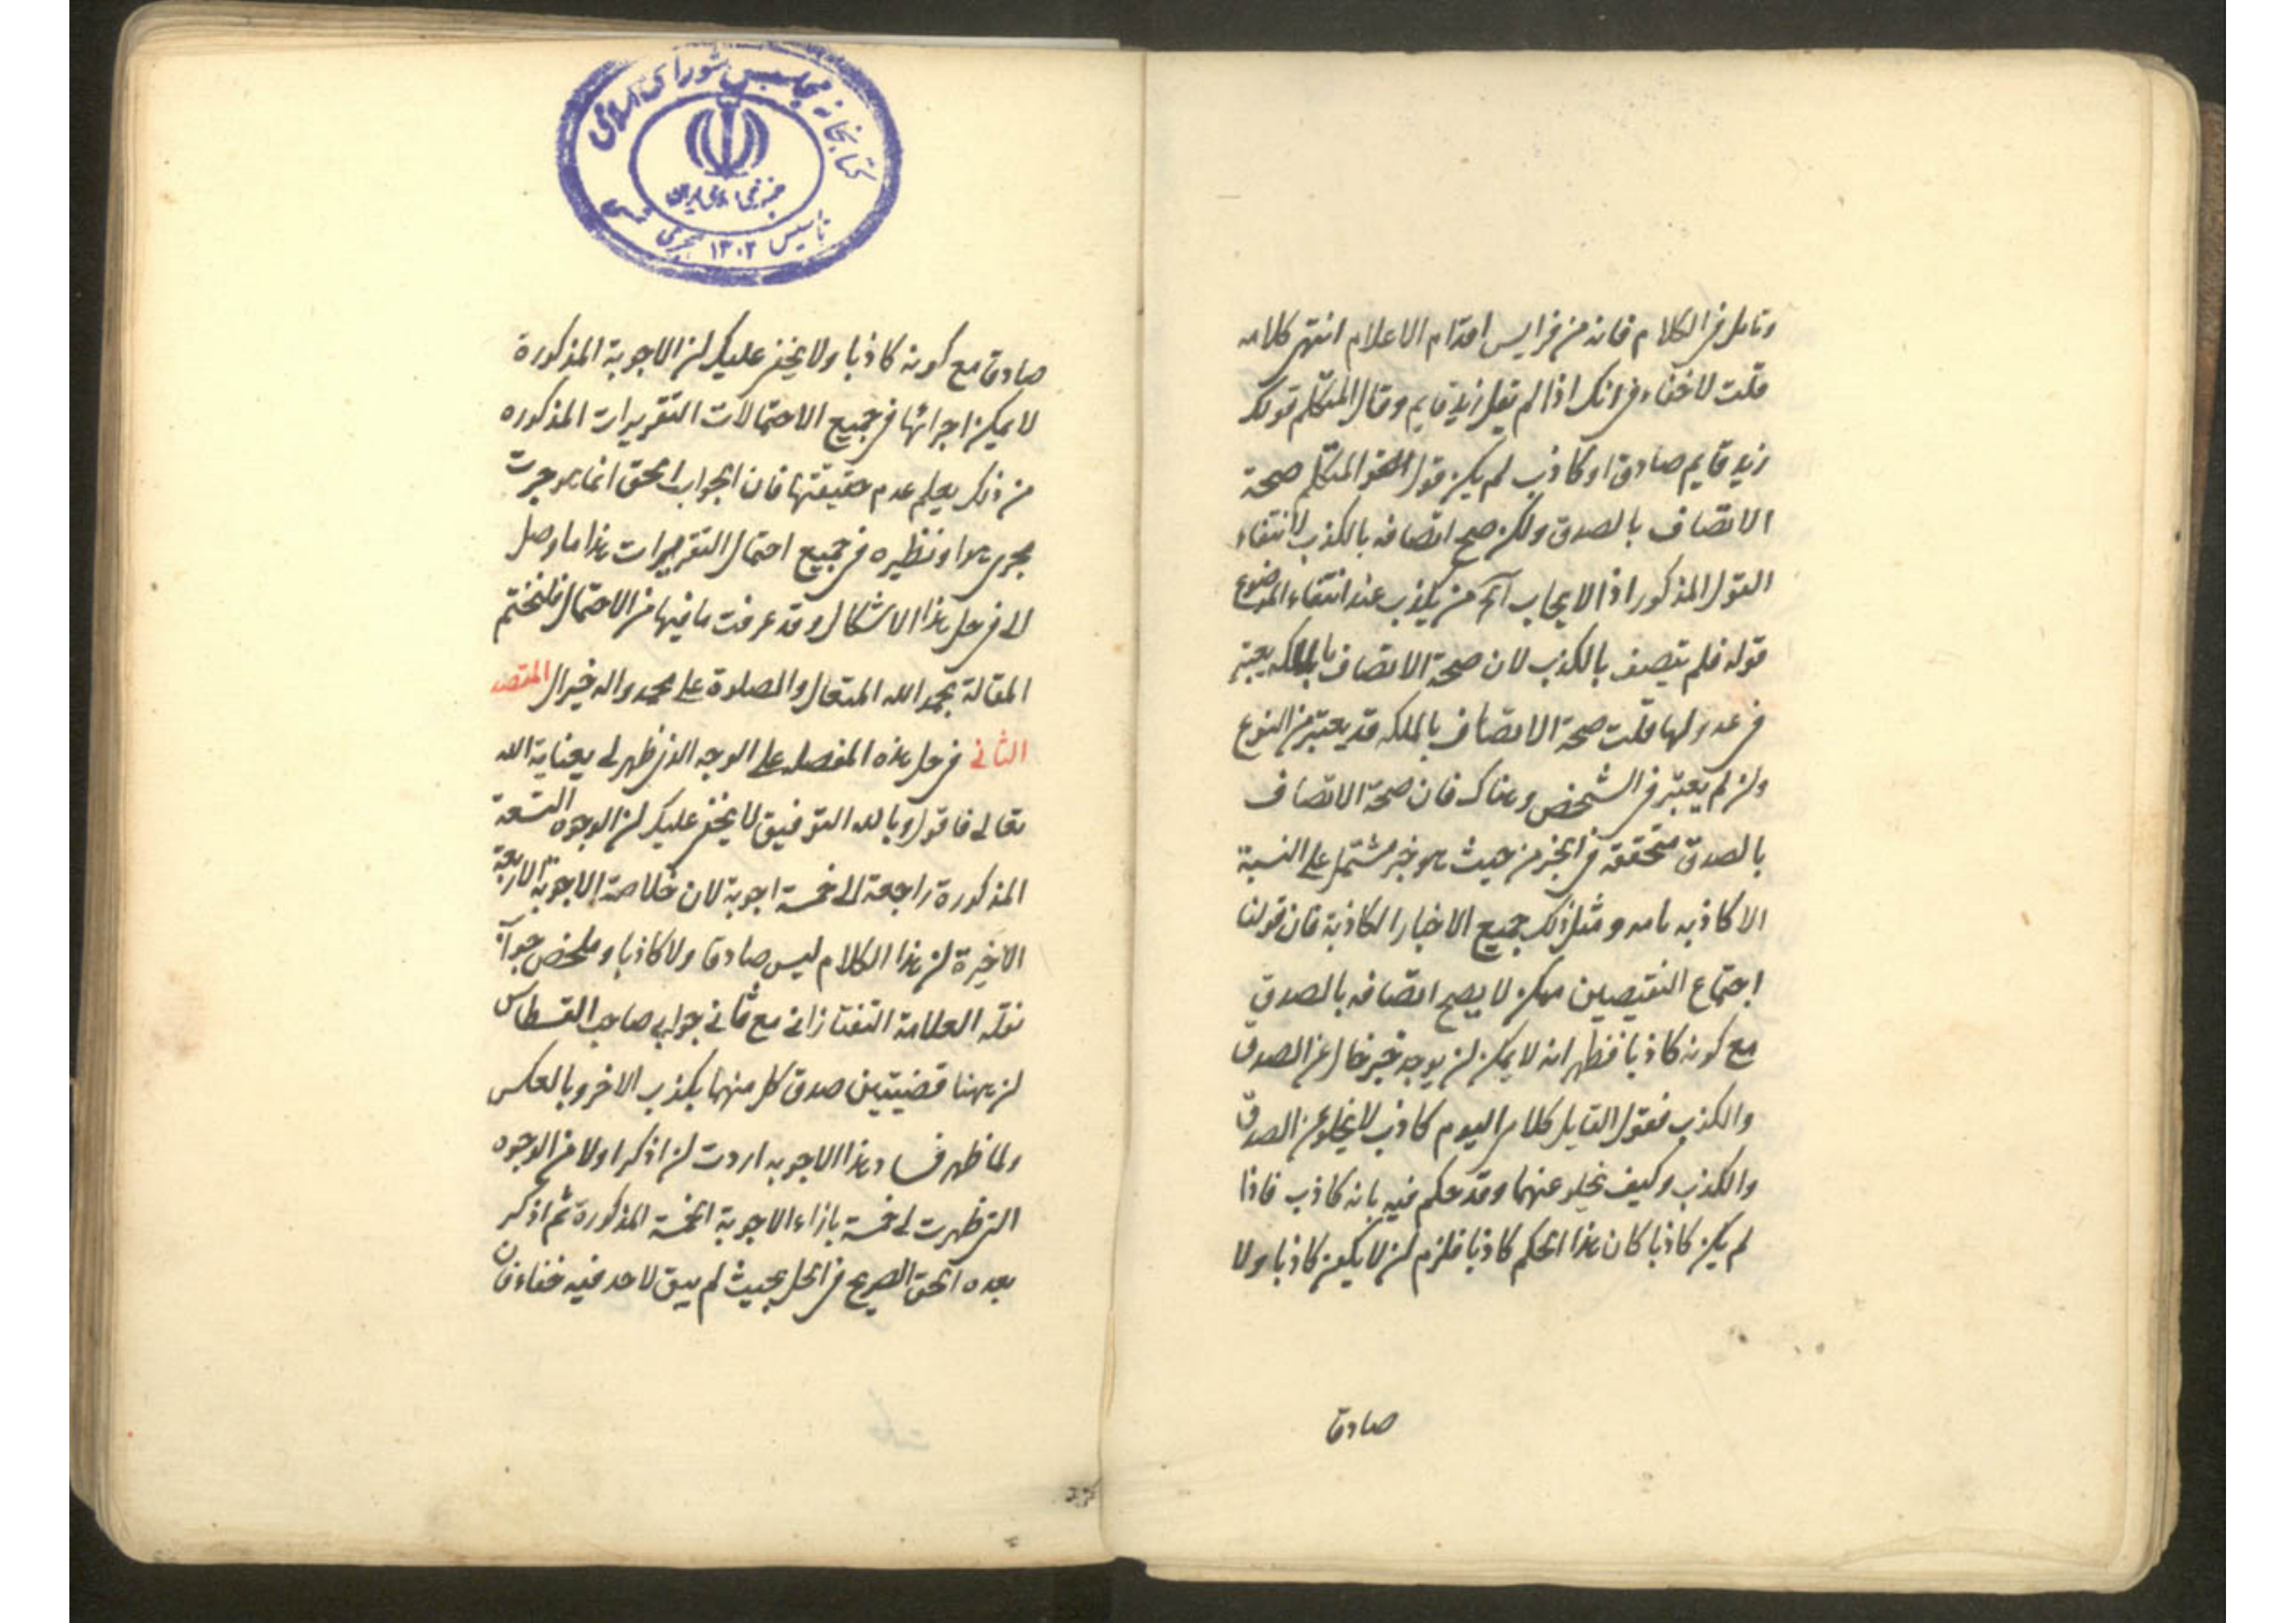 وتامل فی الکلام فانه من فرایس اقدام الاعلام انتهی کلامه
قلت لا خفاء فی انک اذا لم تقل زید قایم وقال المتکلم قولک
زید قایم صادق او کاذب لم یکن قول المتکلم صحة
الاتصاف بالصدق ولکن صح اتصافه بالکذب لانتفاء
القول المذکور اذ الایجاب آنما یکذب عند انتفاء الموضوع
قوله فلم یتصف بالکذب لان صحة الاتصاف بالملکه یعتبر
فی عدولها قلت صحة الاتصاف بالملکه قد یعتبر من النوع
وان لم یعتبر فی الشخص وهناک فان صحة الاتصاف
بالصدق متحققه فی الخبر من حیث هو خبر مشتمل علی النسبة
الا کاذبه ومثل ذلک جمیع الاخبار الکاذبة فان قولنا
اجتماع النقیضین ممکن لا یصح اتصافه بالصدق
مع کونه کاذبا فظهر انه لا یمکن ان یوجد خبر خال عن الصدق
والکذب فقول القایل کلامی الیوم کاذب لا یخلو عن الصدق
والکذب وکیف یخلو عنهما وقد حکم فیه بانه کاذب فاذا
لم یکن کاذبا کان هذا الحکم کاذبا فلزم ان لا یکون کاذبا ولا
صادقا
کتابخانه مجلس شورای اسلامی
جمهوری اسلامی ایران
تاسیس ۱۳۰۲ هجری شمسی
صادقا مع کونه کاذبا ولا یخفی علیک ان الاجوبة المذکورة
لا یمکن اجرائها فی جمیع الاحتمالات التقریرات المذکوره
من ذلک یعلم عدم حقیقتها فان الجواب الحق انما هو جرت
یجری هو او نظیره فی جمیع احتمال التقریرات هذا ما وصل
الی فی حل هذا الاشکال وقد عرفت ما فیها من الاحتمال فلنختم
المقالة بحمد الله المتعال والصلوة علی محمد واله خیر ال المقصد
الثانی فی حل هذه المعضله علی الوجه الذی ظهر لی بعنایة الله
تعالی فاقول وبالله التوفیق لا یخفی علیک ان الوجوه التسعة
المذکورة راجعة الی خمسة اجوبة لان خلاصة الاجوبة الاربعة
الاخیرة ان هذا الکلام لیس صادقا ولا کاذبا وملخص جواب
نقله العلامة التفتازانی مع ثانی جوابی صاحب القسطاس
ان ههنا قضیتین صدق کل منهما بکذب الاخر وبالعکس
ولما ظهر فساد هذا الاجوبه اردت ان اذکر اولا من الوجوه
التی ظهرت لی خمسة بازاء الاجوبة الخمسة المذکورة ثم اذکر
بعده الحق الصریح فی الحل بحیث لم یبق لاحد فیه خفاء فان